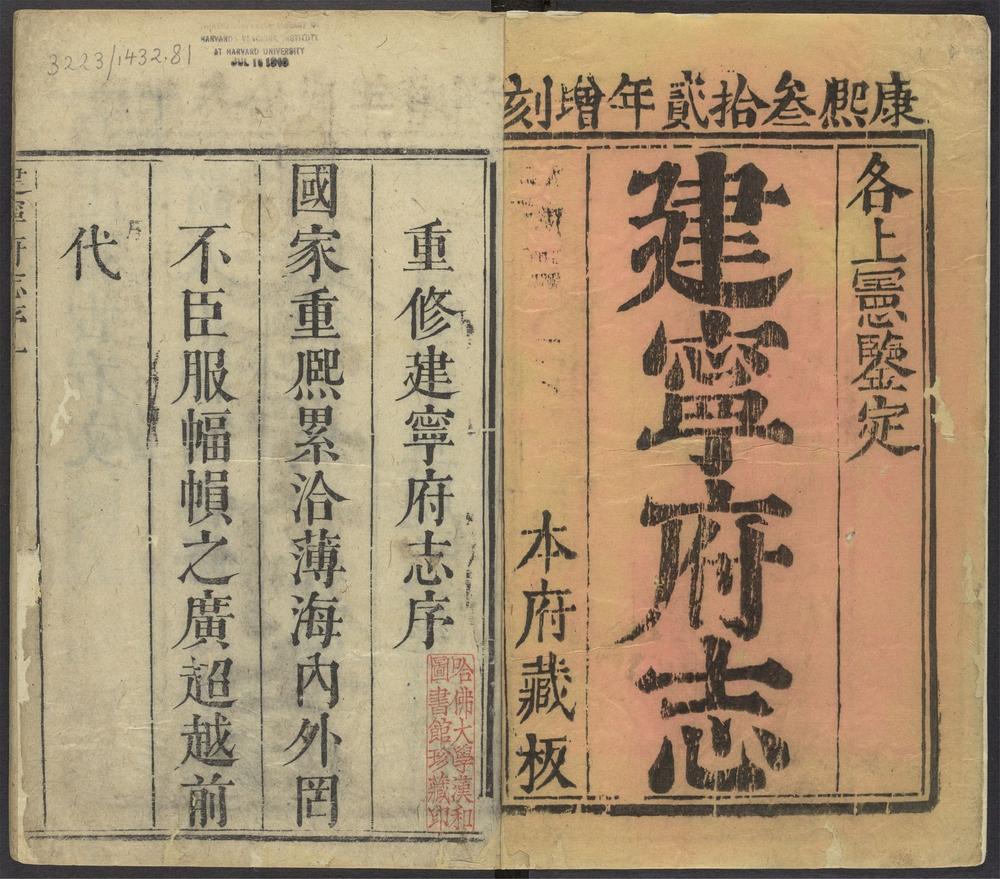 康熙叁拾貳年增刻
各上憲鑒定
建寧府志
本府藏板
重修建寧府志序
國家重熈累洽薄海內外罔
不臣服幅幀之廣超越前
代
建寧府志序一
哈佛大學漢和
圖書館珍藏印
3223/1432.81
AT HARVARD UNIVERSITY
JUL 16 1949